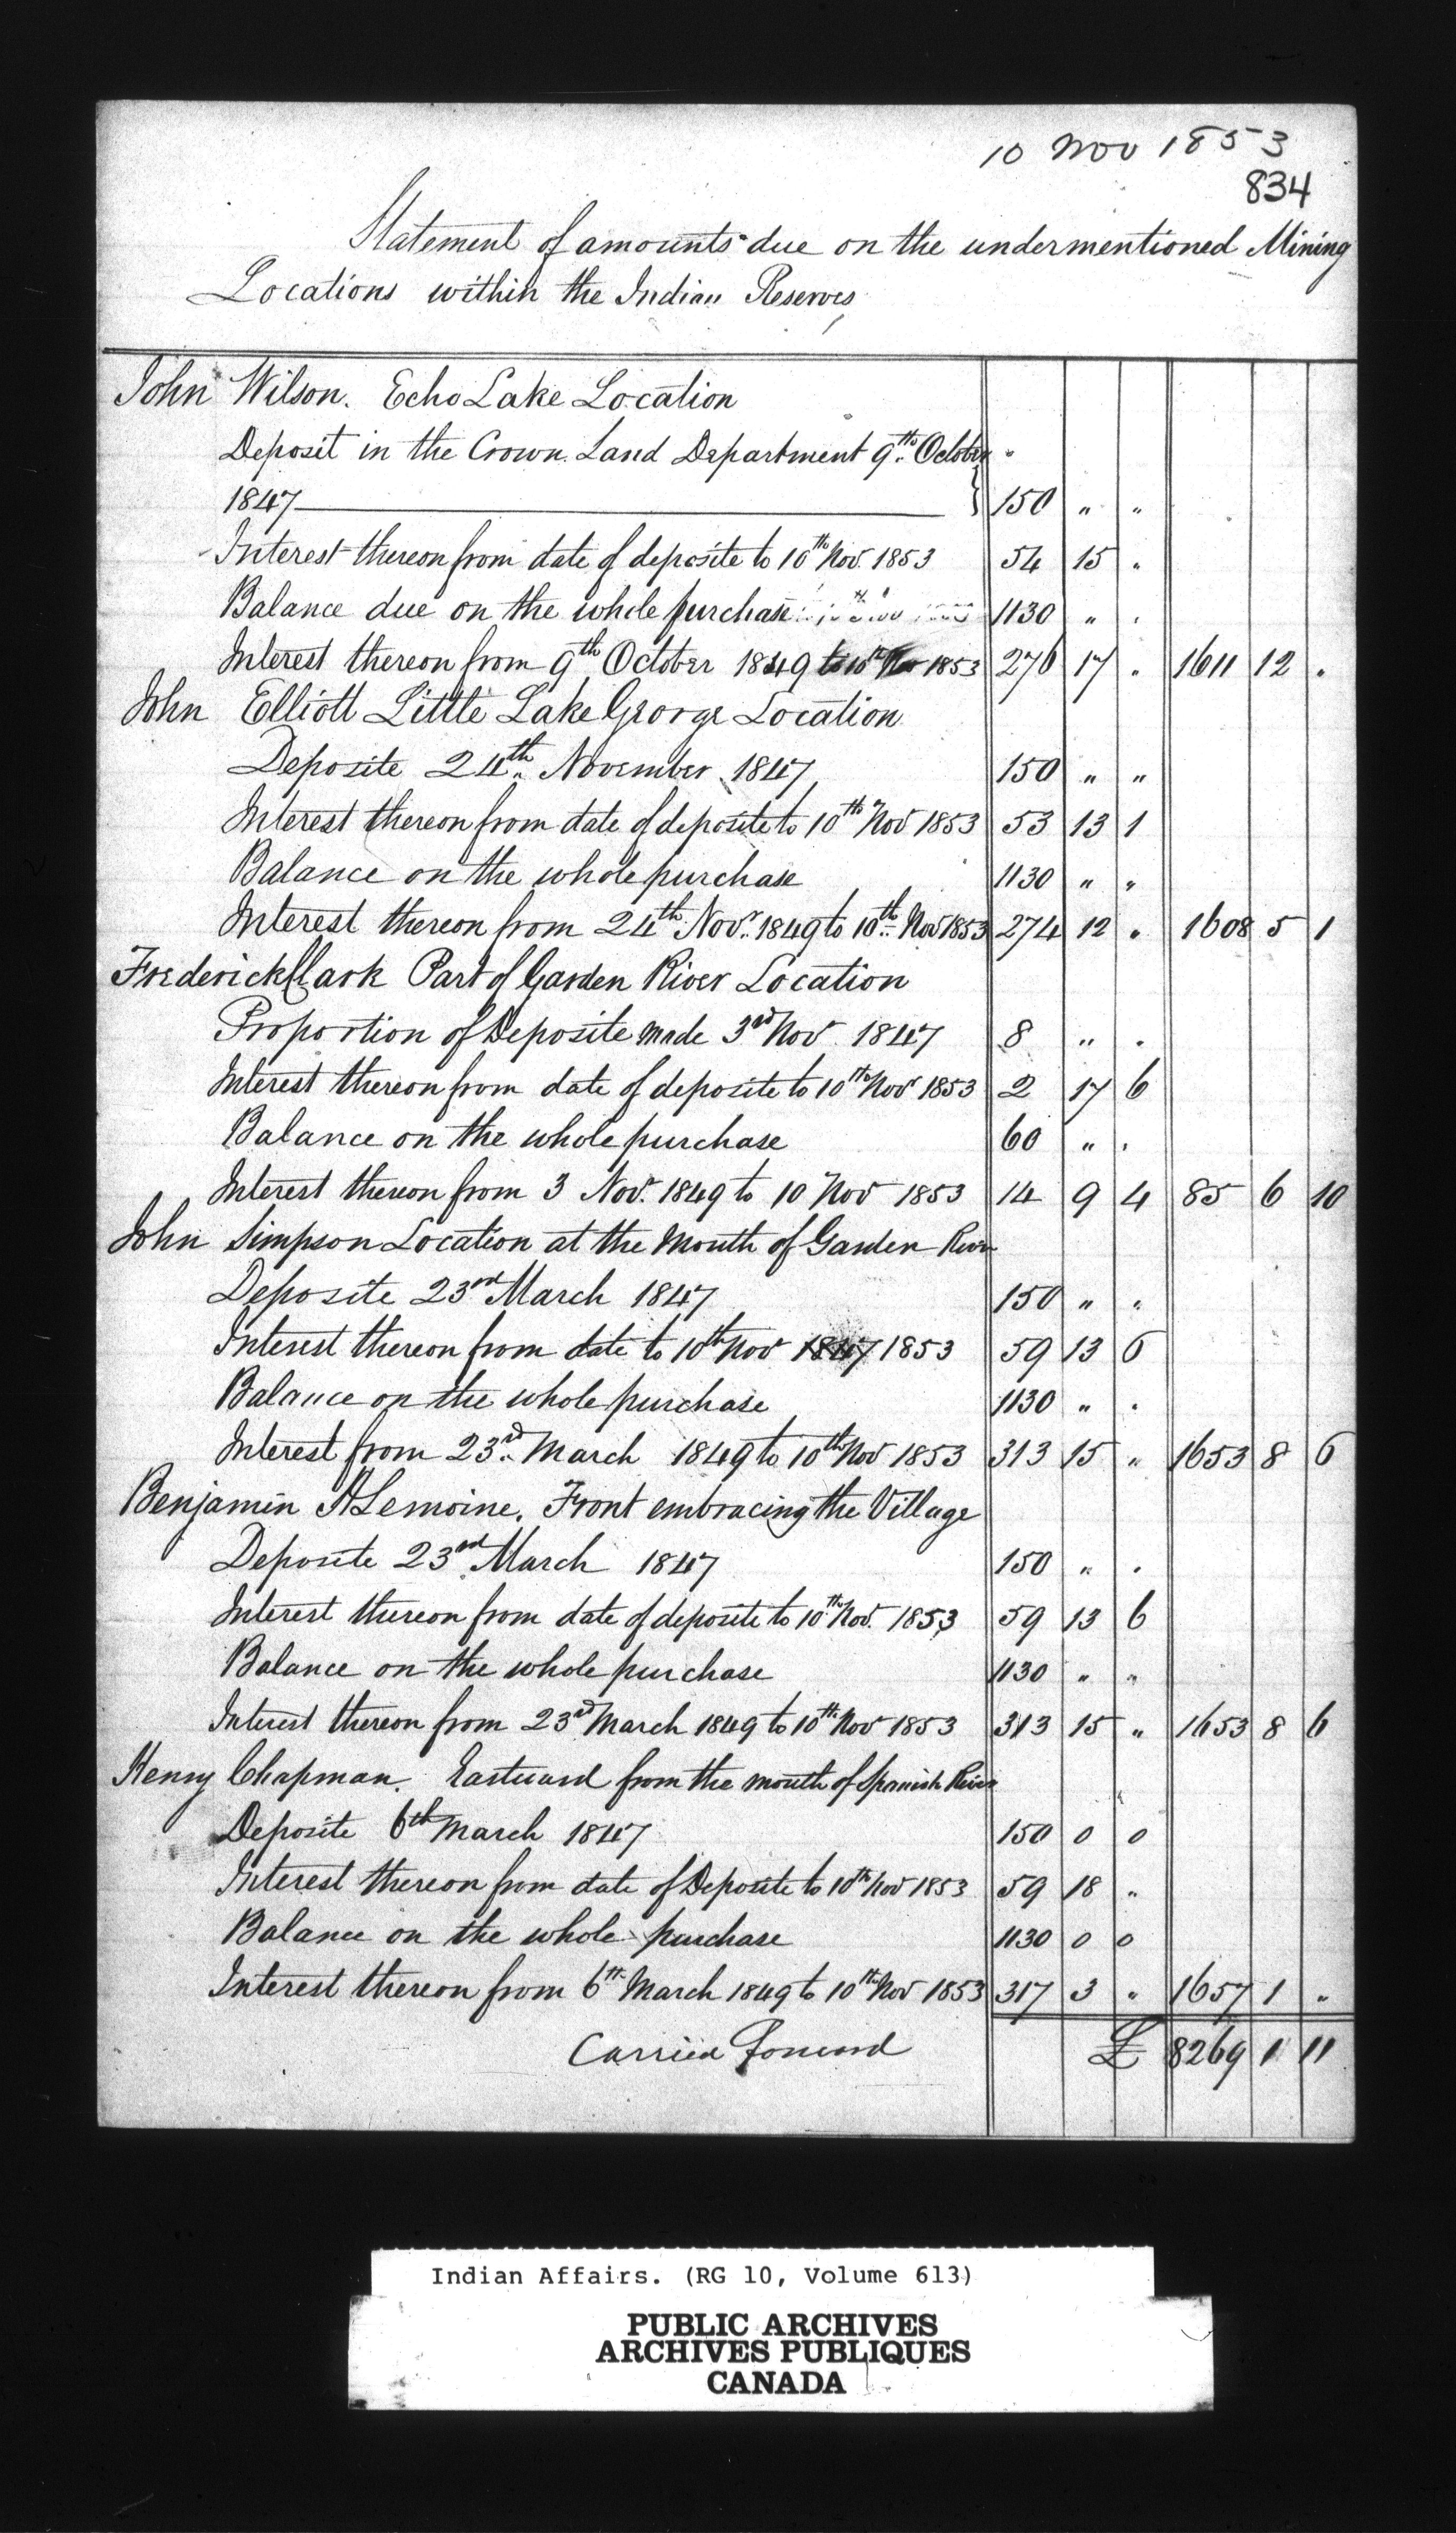 10 Nov 1853
834
Statement of amounts due on the undermentioned Mining
Locations within the Indian Reserves
John Wilson. Echo Lake Location
Deposit in the Crown Land Department 9th October
1847 } 150 " "
Interest thereon from date of deposite to 10th Nov. 1853 54 15 "
Balance due on the whole purchase 1130 " "
Interest thereon from 9th October 1849 to 10th Nov 1853 276 17 " 1611 12 "
John Elliott Little Lake George Location
Deposite 24th November 1847 150 " "
Interest thereon from date of deposite to 10th Nov 1853 53 13 1
Balance on the whole purchase 1130 " "
Interest thereon from 24th Novr. 1849 to 10th Nov 1853 274 12 " 1608 5 1
Frederick Clark Part of Garden River Location
Proportion of Deposite made 3rd Nov 1847 8 " "
Interest thereon from date of deposite to 10th Nov 1853 2 17 6
Balance on the whole purchase 60 " "
Interest thereon from 3 Nov. 1849 to 10 Nov 1853 14 9 4 85 6 10
John Simpson Location at the Mouth of Garden River
Deposite 23rd March 1847 150 " "
Interest thereon from date to 10th Nov 1847 1853 59 13 6
Balance on the whole purchase 1130 " "
Interest from 23rd March 1849 to 10th Nov 1853 313 15 " 1653 8 6
Benjamin H Lemoine. Front embracing the Village
Deposite 23rd March 1847 150 " "
Interest thereon from date of deposite to 10th Nov. 1853 59 13 6
Balance on the whole purchase 1130 " "
Interest thereon from 23rd March 1849 to 10th Nov 1853 313 15 " 1653 8 6
Henry Chapman. Eastward from the mouth of Spanish River
Deposite 6th March 1847 150 0 0
Interest thereon from date of Deposite to 10th Nov 1853 59 18 "
Balance on the whole purchase 1130 0 0
Interest thereon from 6th March 1849 to 10th Nov 1853 317 3 " 1657 1 "
Carried Forward £ 8269 1 11
Indian Affairs. (RG 10, Volume 613)
PUBLIC ARCHIVES
ARCHIVES PUBLIQUES
CANADA